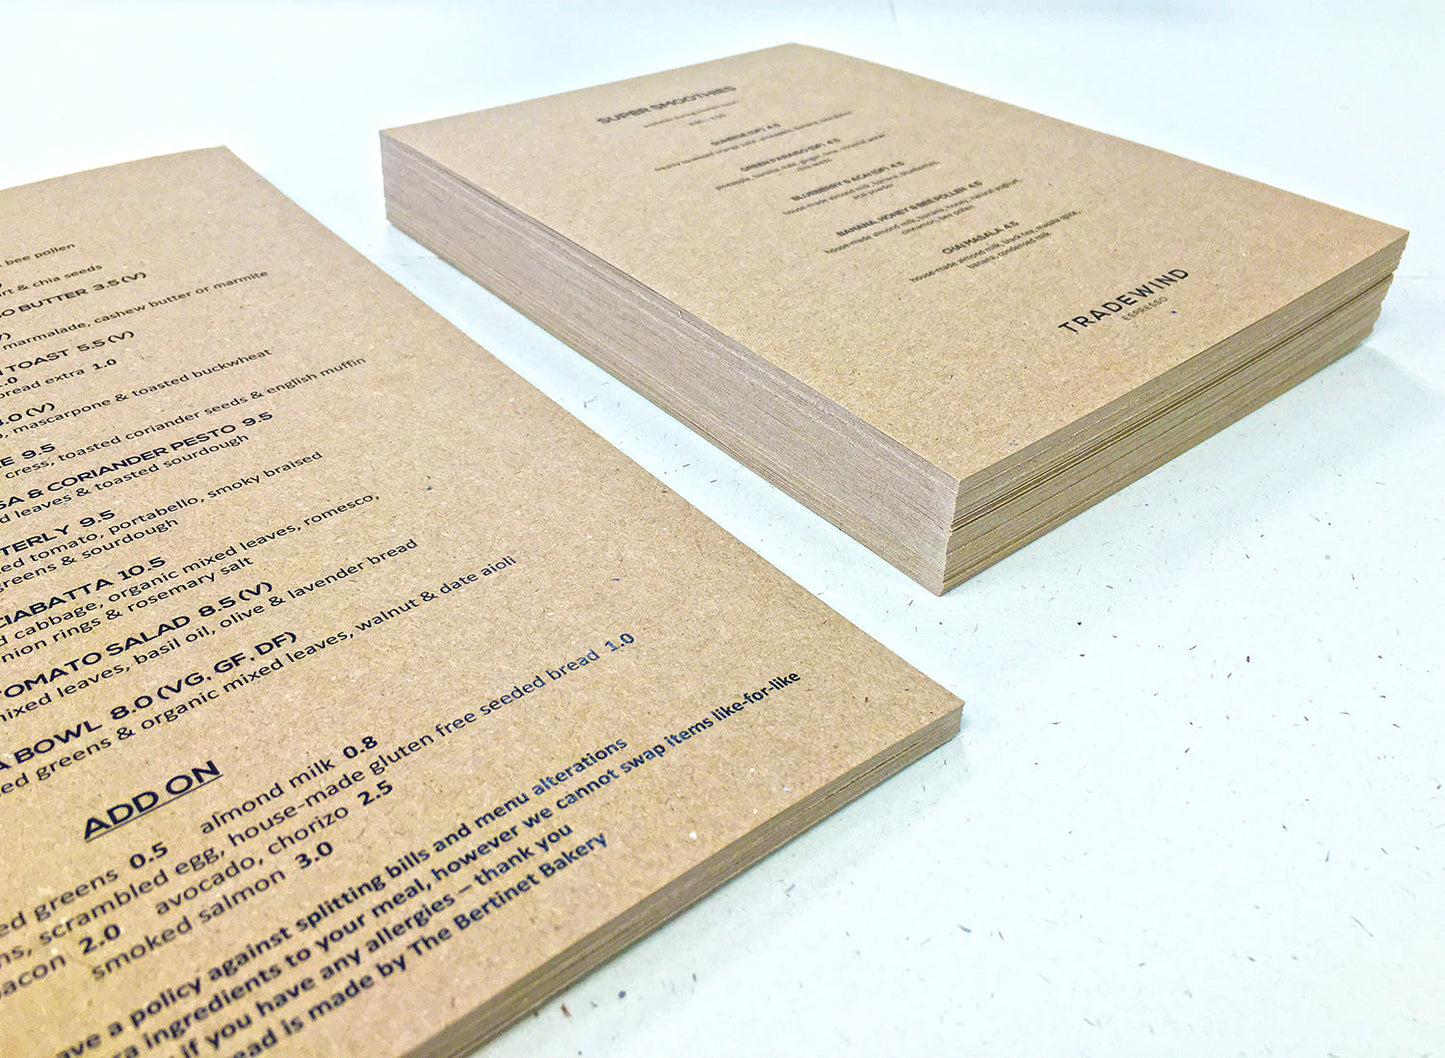 bee pollen
& chia seeds
BUTTER 3.5 (V)
marmalade, cashew butter or marmite
TOAST 5.5 (V)
bread extra 1.0
mascarpone & toasted buckwheat
9.5
cress, toasted coriander seeds & english muffin
& CORIANDER PESTO 9.5
leaves & toasted sourdough
9.5
tomato, portabello, smoky braised
greens & sourdough
CIABATTA 10.5
cabbage, organic mixed leaves, romesco,
onion rings & rosemary salt
TOMATO SALAD 8.5 (V)
mixed leaves, basil oil, olive & lavender bread
BOWL 8.0 (VG, GF, DF)
greens & organic mixed leaves, walnut & date aioli
ADD ON
greens 0.5 almond milk 0.8
scrambled egg, house-made gluten free seeded bread 1.0
bacon 2.0 avocado, chorizo 2.5
smoked salmon 3.0
have a policy against splitting bills and menu alterations
ingredients to your meal, however we cannot swap items like-for-like
if you have any allergies – thank you
bread is made by The Bertinet Bakery
SUPER SMOOTHIES
4.5
GREEN PARADISO (DF) 4.5
pineapple,
BLUEBERRY & ACAI (DF) 4.5
house-made almond milk, banana, blueberries,
acai powder
BANANA, HONEY & BEE POLLEN 4.5
house-made almond milk, banana, honey, natural yoghurt,
cinnamon, bee pollen
CHAI MASALA 4.5
house-made almond milk, black tea, masala spice,
banana, condensed milk
TRADEWIND
ESPRESSO